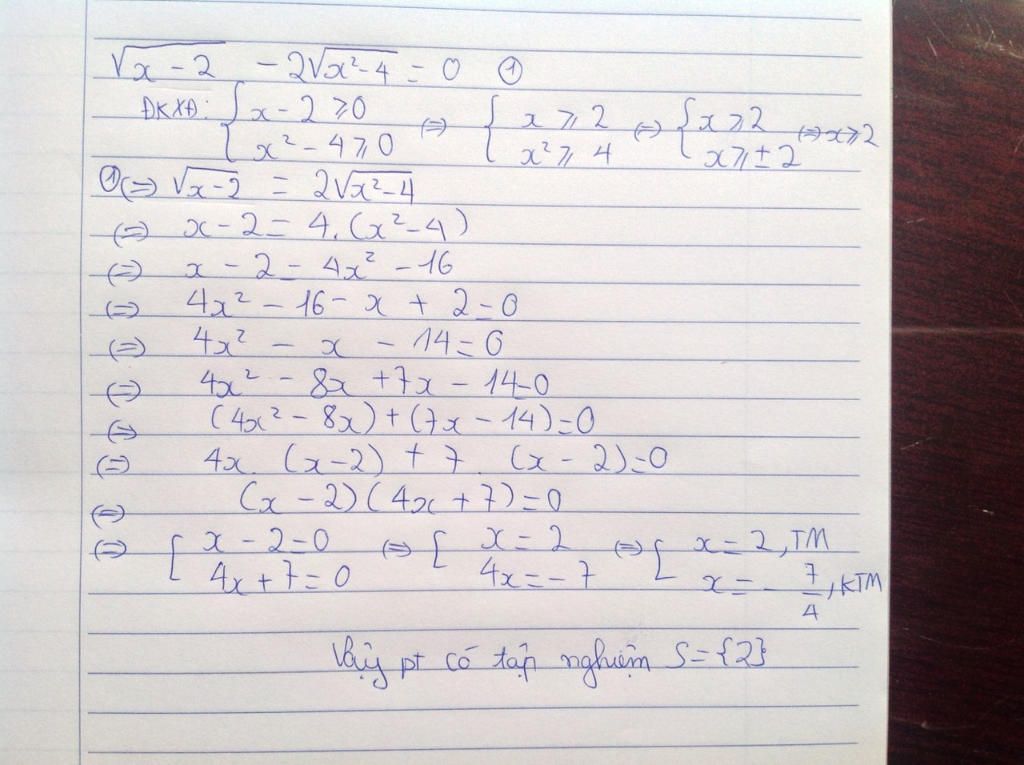 √(x-2) - 2√(x²-4) = 0 ①
ĐKXĐ: { x-2 ⩾ 0 ; x² - 4 ⩾ 0 ⇔ { x ⩾ 2 ; x² ⩾ 4 ⇔ { x ⩾ 2 ; x ⩾ ± 2 ⇔ x ⩾ 2
① ⇔ √(x-2) = 2√(x²-4)
⇔ x-2 = 4.(x²-4)
⇔ x - 2 = 4x² - 16
⇔ 4x² - 16 - x + 2 = 0
⇔ 4x² - x - 14 = 0
⇔ 4x² - 8x + 7x - 14 = 0
⇔ (4x² - 8x) + (7x - 14) = 0
⇔ 4x. (x-2) + 7. (x-2) = 0
⇔ (x-2)(4x+7) = 0
⇔ [ x-2=0 ; 4x+7=0 ⇔ [ x=2 ; 4x=-7 ⇔ [ x=2, TM ; x=-7/4, KTM
Vậy pt có tập nghiệm S={2}